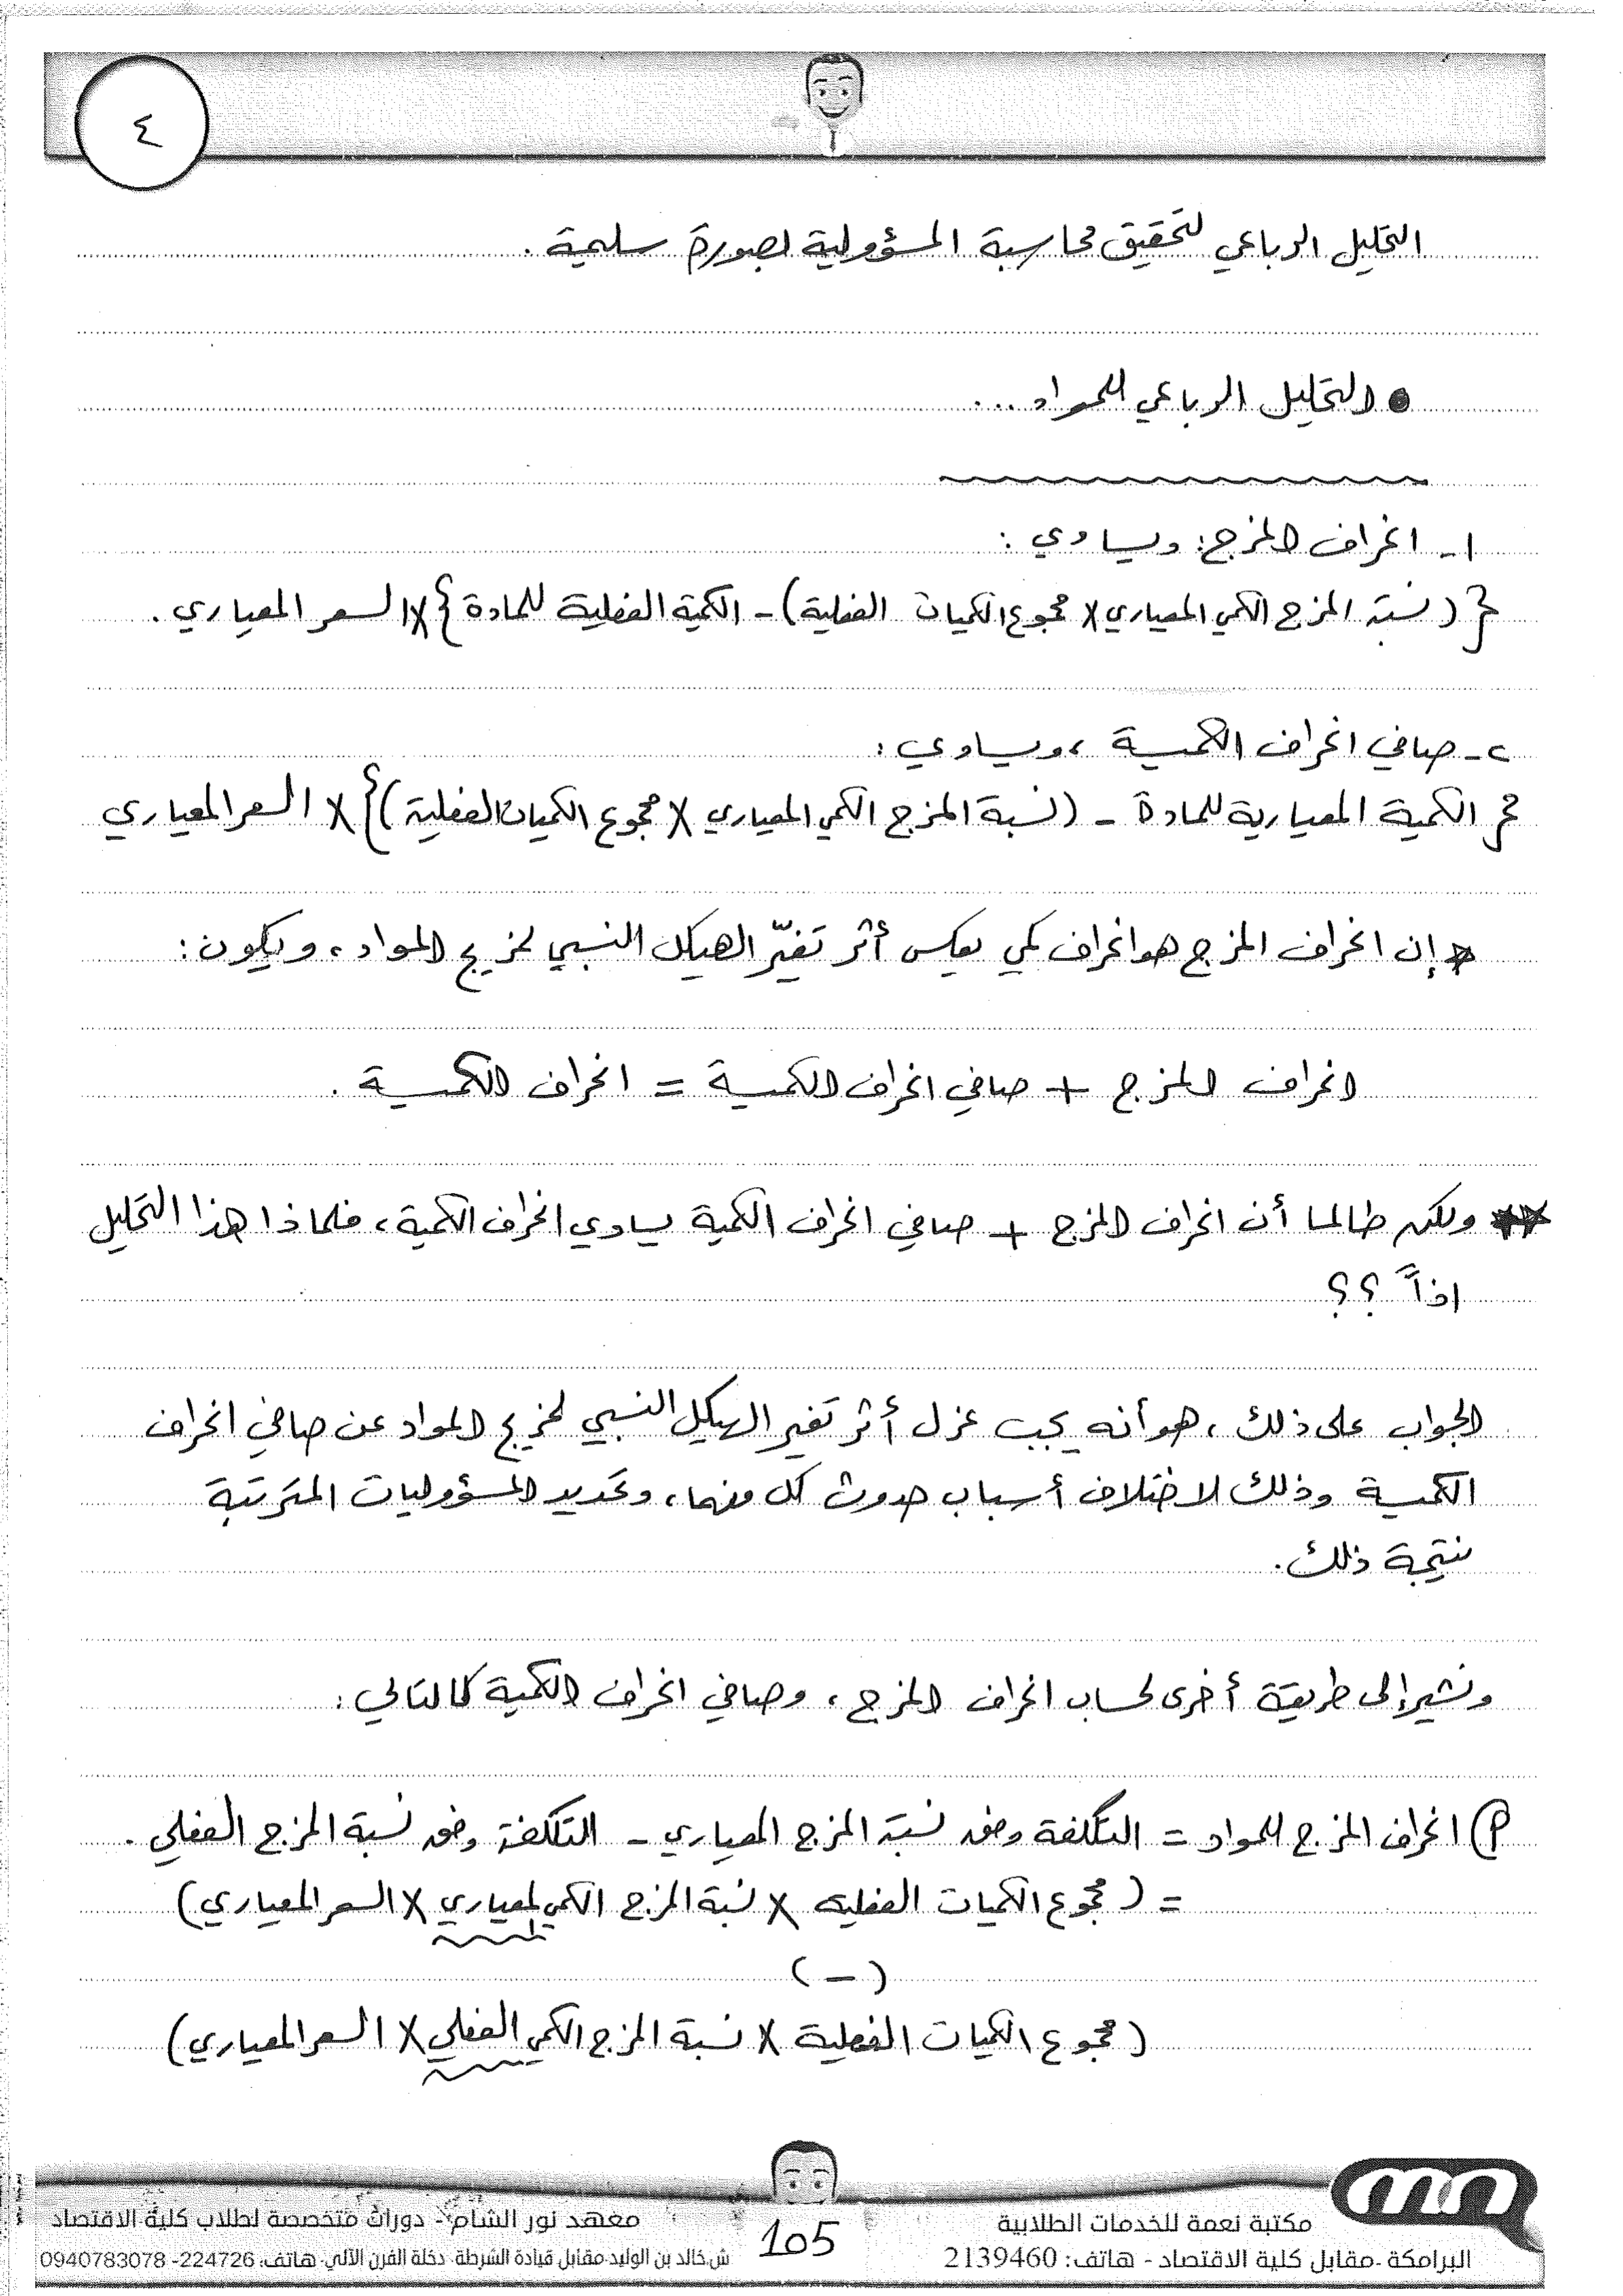 ٤
التحليل الرباعي لتحقيق محاسبة المسؤولية بصورة سليمة .
● التحليل الرباعي للمواد ...
١- انحراف المزج : ويساوي :
{ ( نسبة المزج الكمي المعياري X مجموع الكميات الفعلية ) - الكمية الفعلية للمادة } X السعر المعياري .
٢- صافي انحراف الكمية ، ويساوي :
{ الكمية المعيارية للمادة - ( نسبة المزج الكمي المعياري X مجموع الكميات الفعلية ) } X السعر المعياري
* إن انحراف المزج هو انحراف كمي يعكس أثر تغيّر الهيكل النسبي لمزيج المواد ، ويكون :
انحراف المزج + صافي انحراف الكمية = انحراف الكمية .
** ولكن طالما أن انحراف المزج + صافي انحراف الكمية يساوي انحراف الكمية ، فلماذا هذا التحليل
اذاً ؟؟
الجواب على ذلك ، هو أنه يجب عزل أثر تغير الهيكل النسبي لمزيج المواد عن صافي انحراف
الكمية وذلك لاختلاف أسباب حدوث كل منهما ، وتحديد المسؤوليات المترتبة
نتيجة ذلك .
ونشير إلى طريقة أخرى لحساب انحراف المزج ، وصافي انحراف الكمية كالتالي :
P) انحراف المزج للمواد = التكلفة وفق نسبة المزج المعياري - التكلفة وفق نسبة المزج الفعلي .
= ( مجموع الكميات الفعلية X نسبة المزج الكمي المعياري X السعر المعياري )
( - )
( مجموع الكميات الفعلية X نسبة المزج الكمي الفعلي X السعر المعياري )
مكتبة نعمة للخدمات الطلابية
البرامكة - مقابل كلية الاقتصاد - هاتف: 2139460
105
معهد نور الشام - دورات متخصصة لطلاب كلية الاقتصاد
ش.خالد بن الوليد-مقابل قيادة الشرطة- دخلة الفرن الآلي- هاتف: 224726- 0940783078